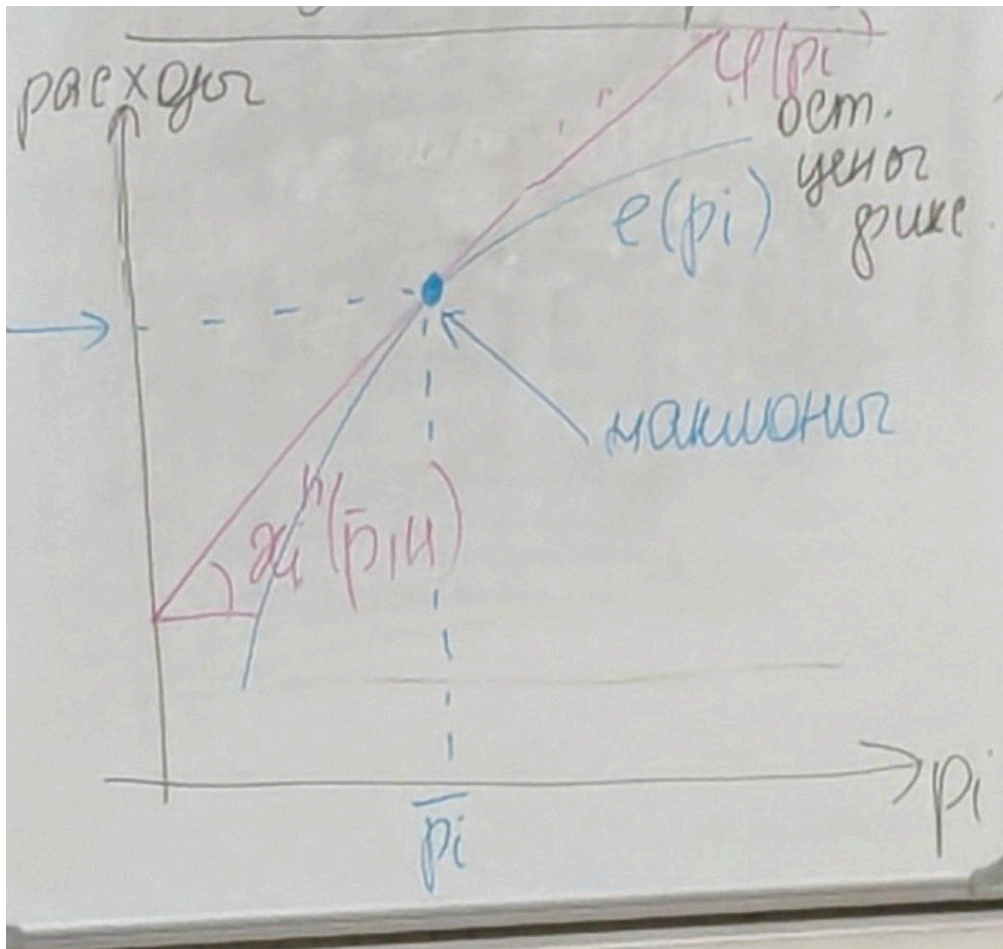 расходы
φ(pi
ост.
цены
фикс.
e(pi)
наклоны
xiʰ(p̄,u)
p̄i
pi